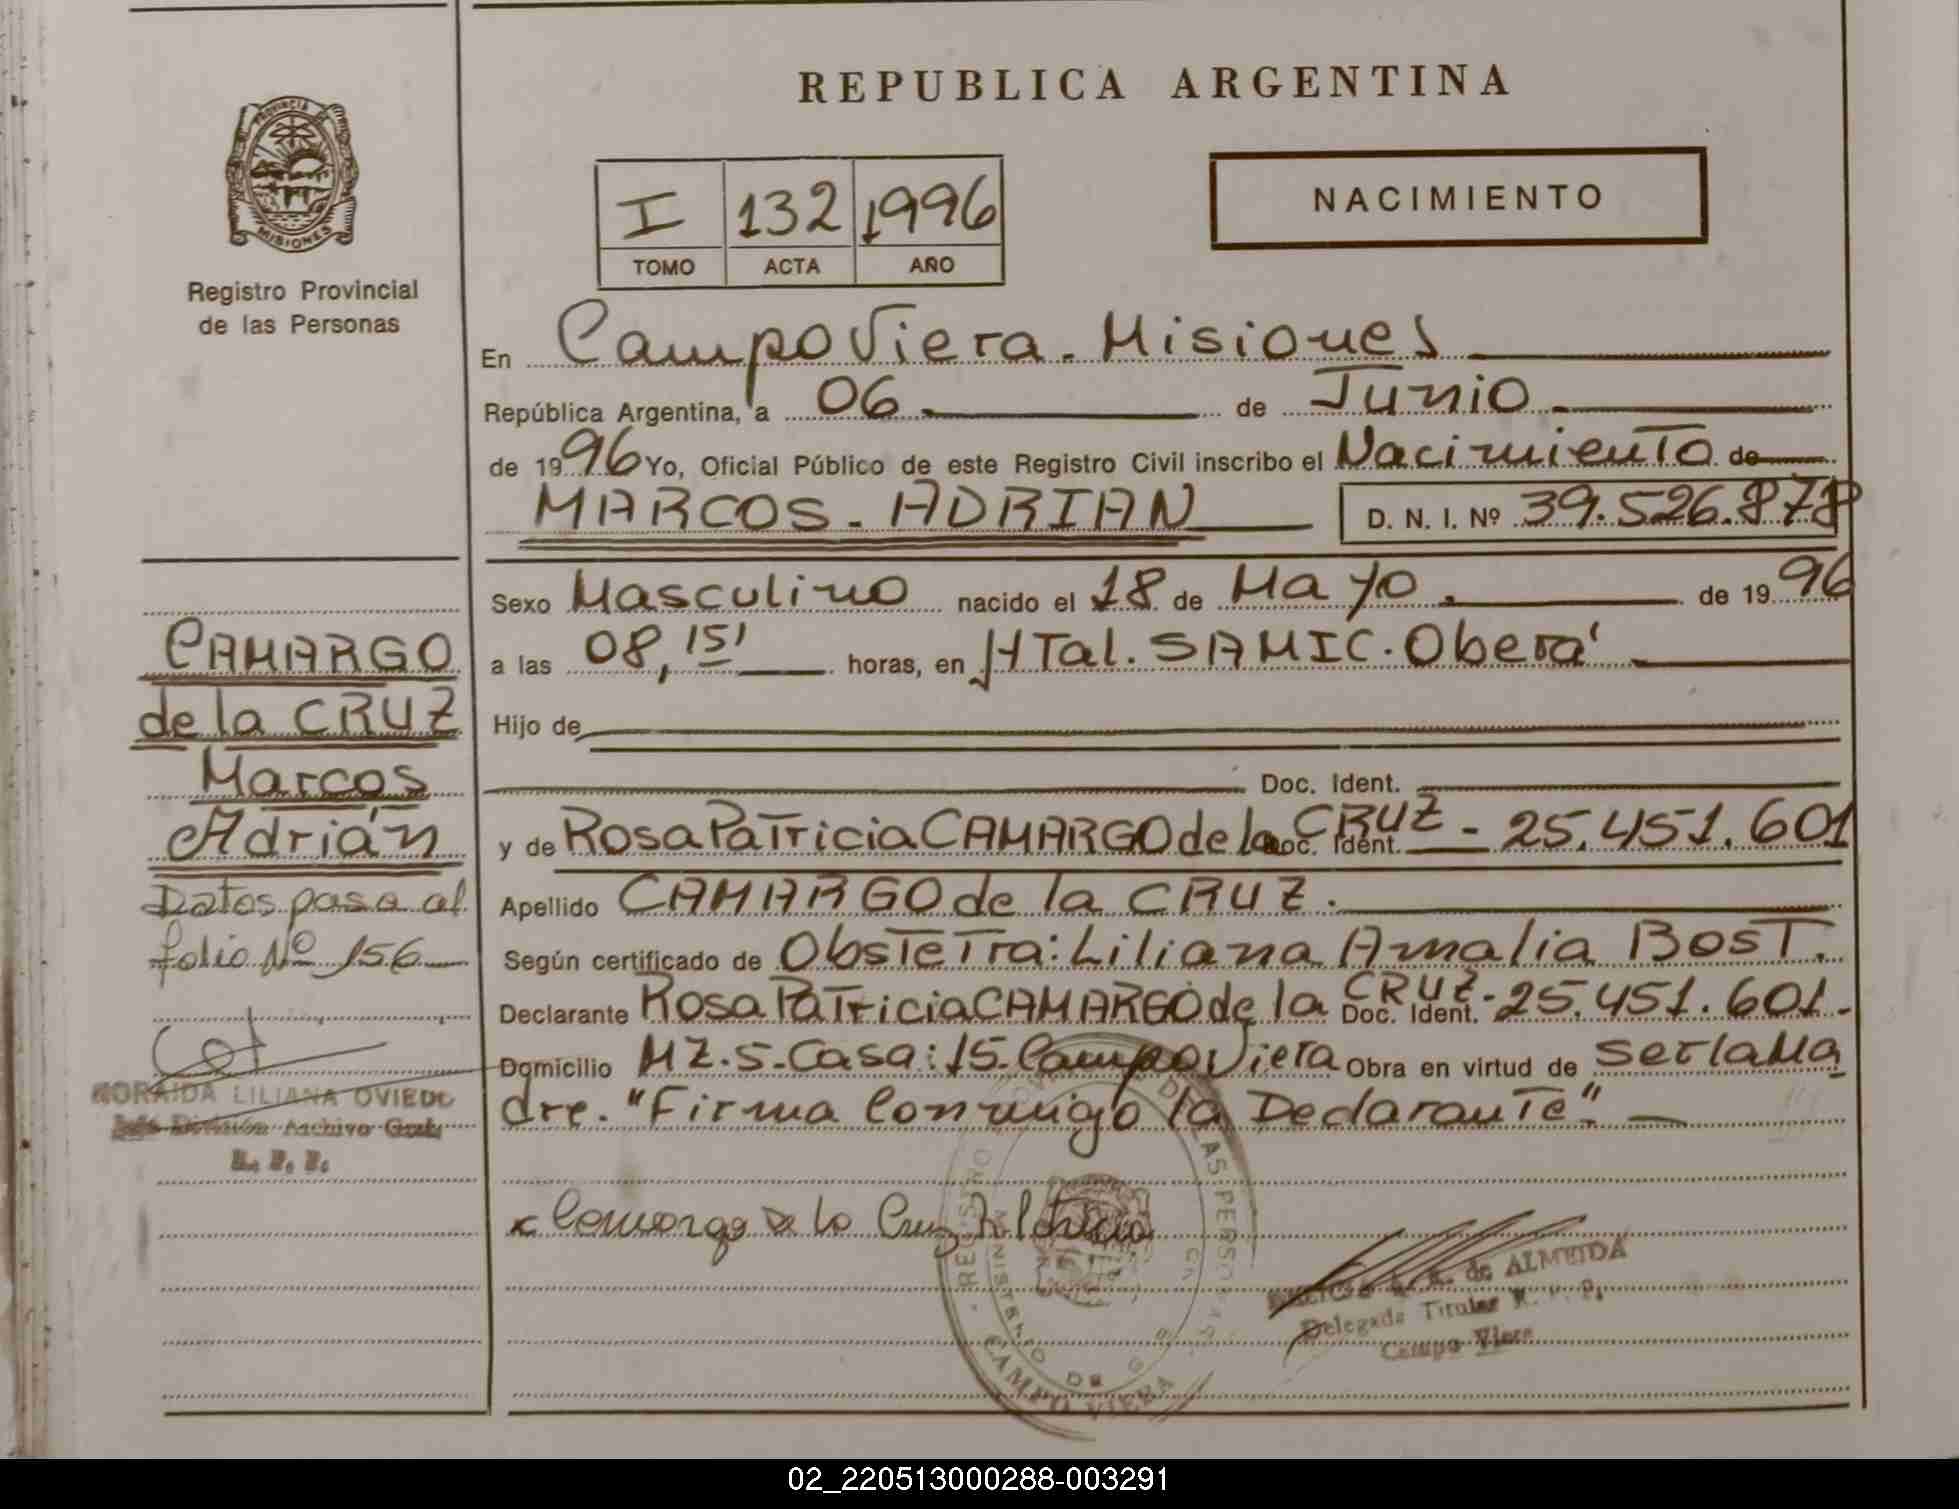 REPUBLICA ARGENTINA
PROVINCIA
MISIONES
Registro Provincial
de las Personas
I 132 1996
TOMO ACTA AÑO
NACIMIENTO
En Campo Viera - Misiones
República Argentina, a 06 de Junio
de 1996 Yo, Oficial Público de este Registro Civil inscribo el Nacimiento de
MARCOS - ADRIAN D. N. I. Nº 39.526.878
Sexo Masculino nacido el 18 de Mayo de 1996
a las 08,15' horas, en HTal. SAMIC. Oberá
Hijo de
Doc. Ident.
y de Rosa Patricia CAMARGO de la CRUZ - Doc. Ident. 25.451.601
Apellido CAMARGO de la CRUZ.
Según certificado de Obstetra: Liliana Amalia Bost.
Declarante Rosa Patricia CAMARGO de la CRUZ - Doc. Ident. 25.451.601.-
Domicilio MZ.5-Casa:15-Campo Viera Obra en virtud de ser la Ma
dre. "Firma Conmigo la Declarante".-
CAMARGO
de la CRUZ
Marcos
Adrián
Datos pasa al
folio Nº 156
NORAIDA LILIANA OVIEDO
Jefe División Archivo Gral.
R. P. P.
Camargo De la Cruz R Patricia
REGISTRO DE LAS PERSONAS
MINISTERIO DE
CAMPO VIERA
de ALMEIDA
Delegada Titular R. P. P.
Campo Viera
02_220513000288-003291